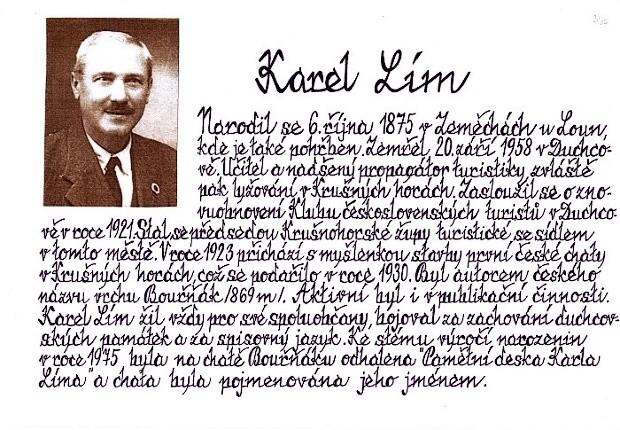 Karel Lím
Narodil se 6. října 1875 v Zeměchách u Loun,
kde je také pohřben. Zemřel 20. září 1958 v Duchco-
vě. Učitel a nadšený propagátor turistiky, zvláště
pak lyžování v Krušných horách. Zasloužil se o zno-
vuobnovení Klubu československých turistů v Duchco-
vě v roce 1921. Stal se předsedou Krušnohorské župy turistické se sídlem
v tomto městě. V roce 1923 přichází s myšlenkou stavby první české chaty
v Krušných horách, což se podařilo v roce 1930. Byl autorem českého
názvu vrchu Bouřňák /869 m/. Aktivní byl i v publikační činnosti.
Karel Lím žil vždy pro své spoluobčany, bojoval za zachování duchcov-
ských památek a za spisovný jazyk. Ke stému výročí narozenin
v roce 1975 byla na chatě Bouřňáku odhalena "Pamětní deska Karla
Líma" a chata byla pojmenována jeho jménem.